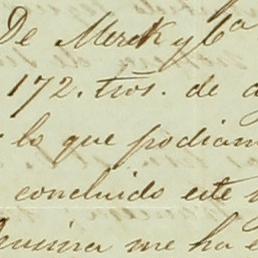 De Merck y Cª
172. tros. de
lo que podian
concluido este
me ha